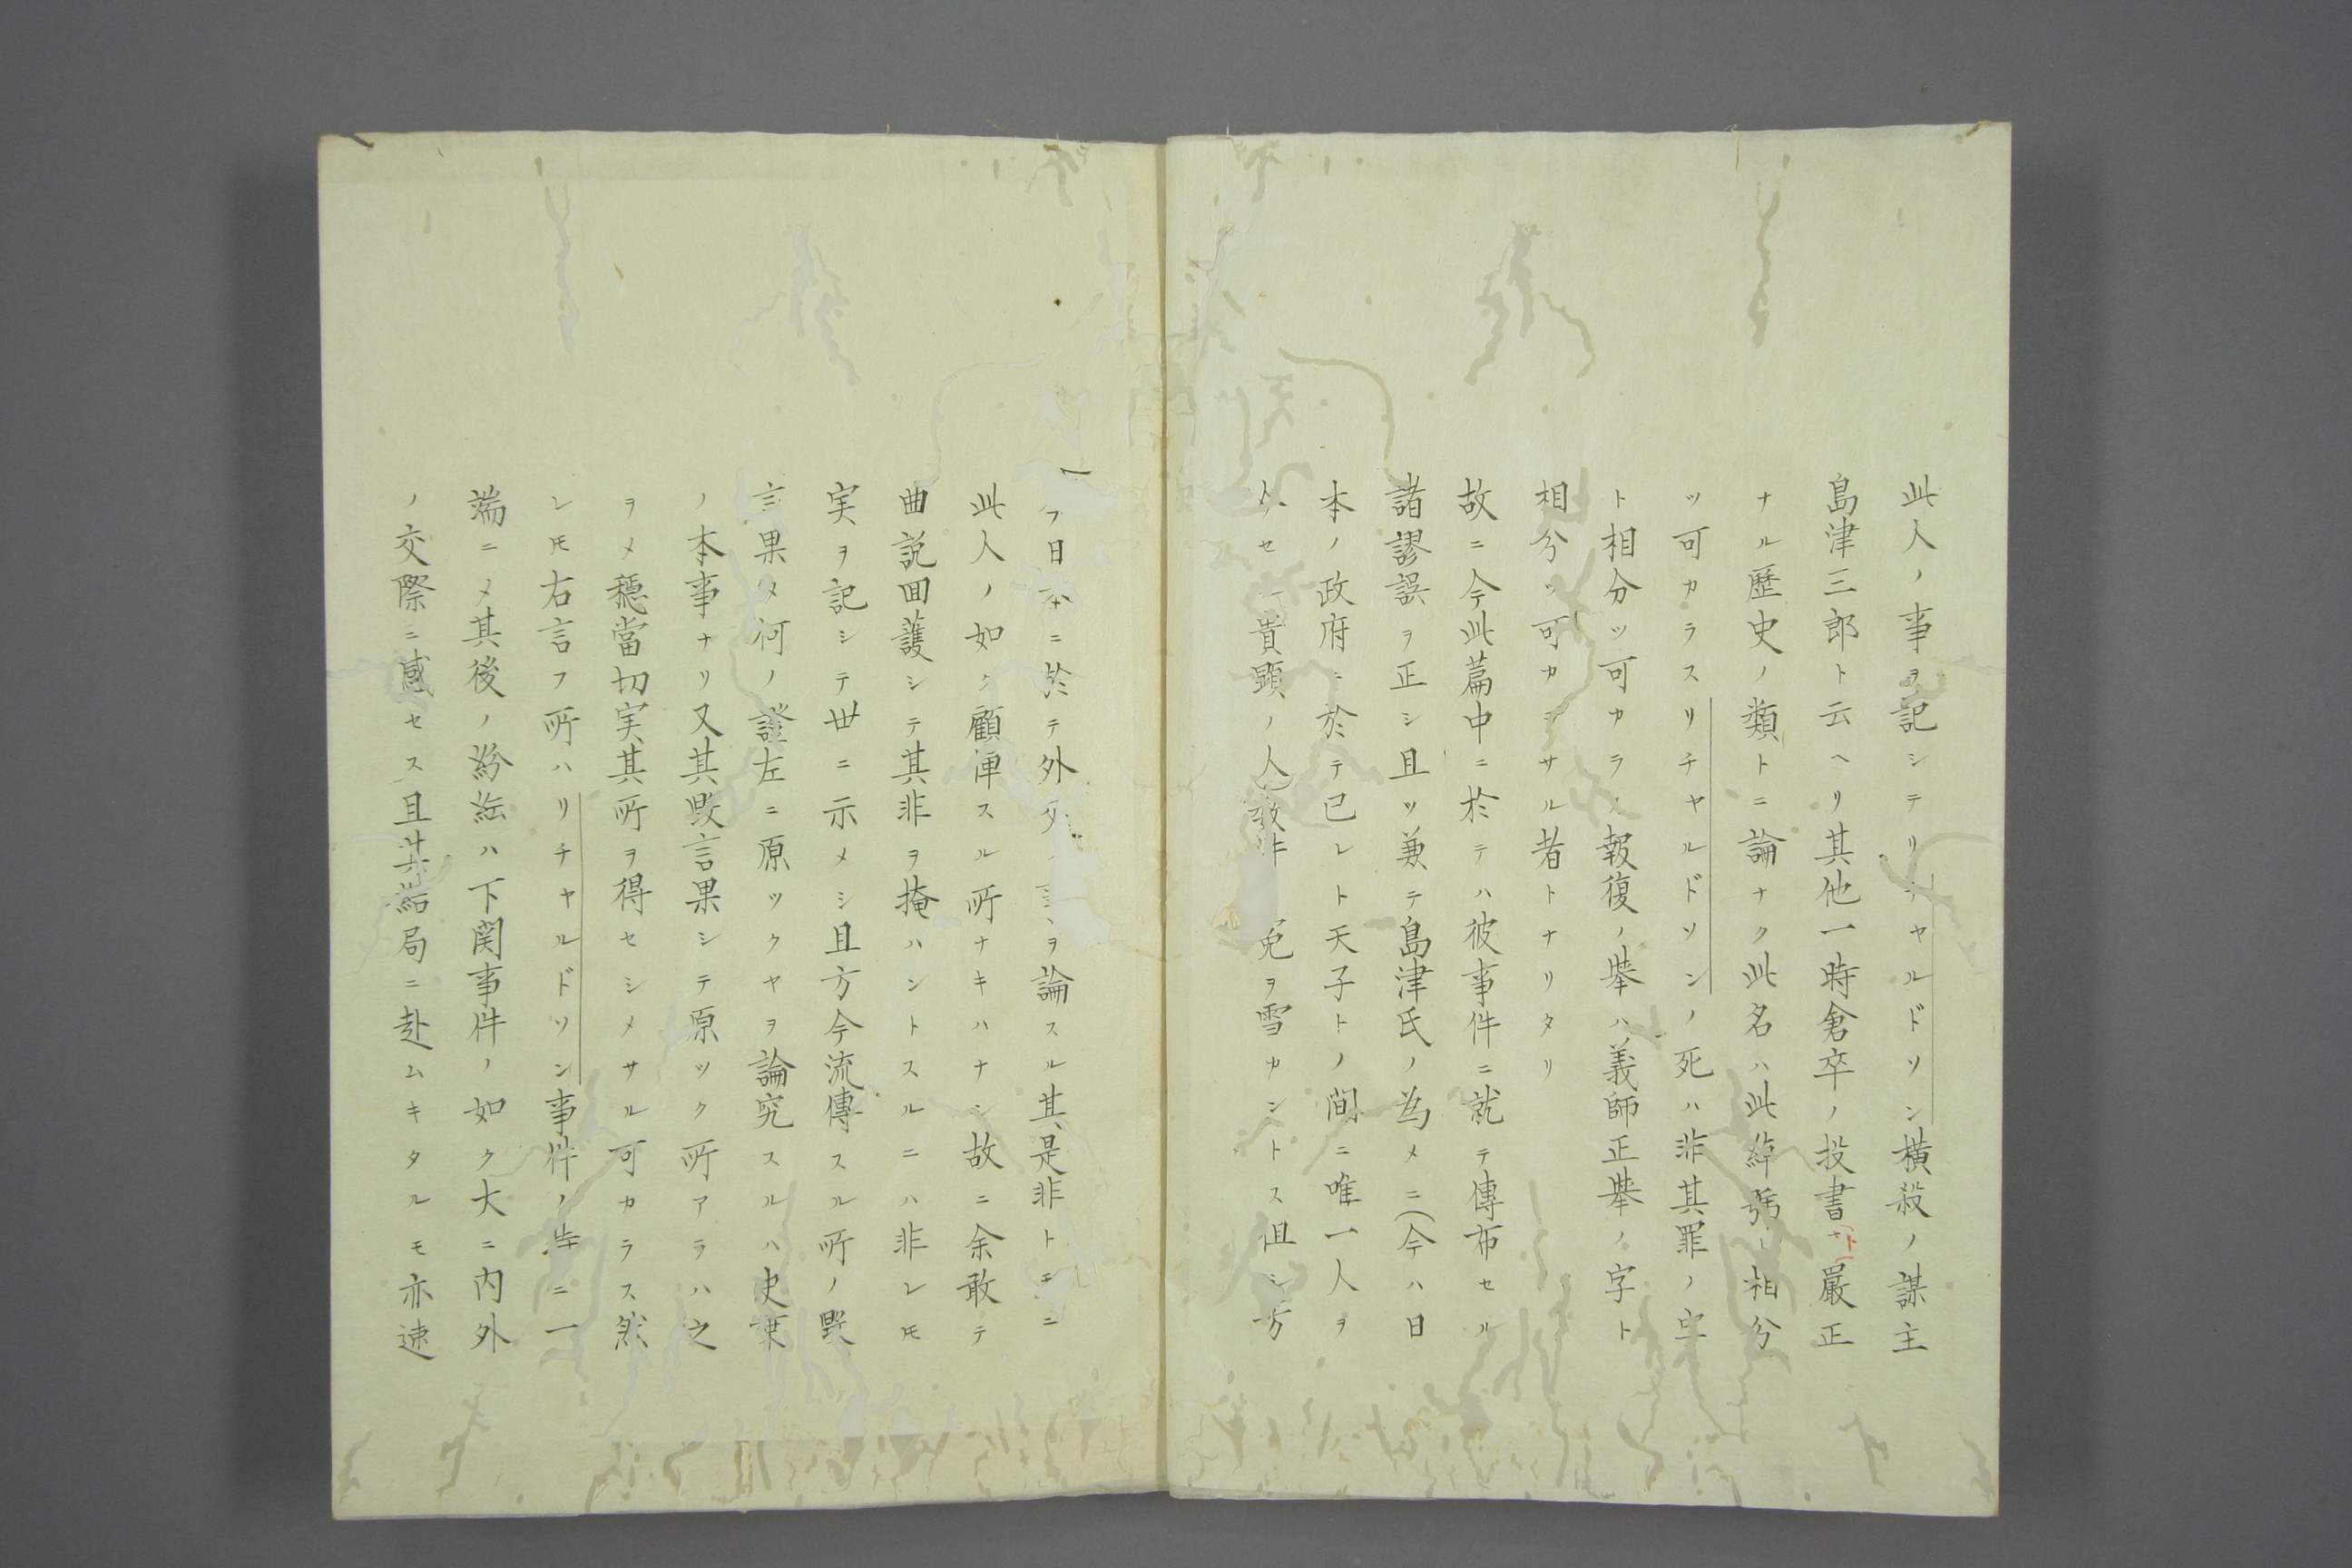 此人ノ事ヲ記シテリチャルドソン横殺ノ謀主
島津三郎ト云ヘリ其他一時倉卒ノ投書ト嚴正
ナル歷史ノ類トニ論ナク此名ハ此綽號ト相分
ツ可カラスリチャルドソンノ死ハ非其罪ノ字
ト相分ツ可カラス報復ノ挙ハ義師正挙ノ字ト
相分ツ可カラサル者トナリタリ
故ニ今此篇中ニ於テハ彼事件ニ就テ傳布セル
諸謬誤ヲ正シ且ツ兼テ島津氏ノ為メニ(今ハ日
本ノ政府ニ於テ已レト天子トノ間ニ唯一人ヲ
セ 貴顕ノ人 冤ヲ雪カントス但シ方
フ日本ニ於テ外 ヲ論スル其是非トモニ
此人ノ如ク顧 スル所ナキハナシ故ニ余敢テ
曲説回護シテ其非ヲ掩ハントスルニハ非レ𪜈
実ヲ記シテ世ニ示メシ且方今流傳スル所ノ毀
言果タ何ノ證左ニ原ツクヤヲ論究スルハ史乗
ノ本事ナリ又其毀言果シテ原ツク所アラハ之
ヲメ穏當切実其所ヲ得セシメサル可カラス然
レ𪜈右言フ所ハリチャルドソン事件ノ ニ一
端ニメ其後ノ紛紜ハ下関事件ノ如ク大ニ内外
ノ交際ニ感セス且其結局ニ赴ムキタルモ亦速